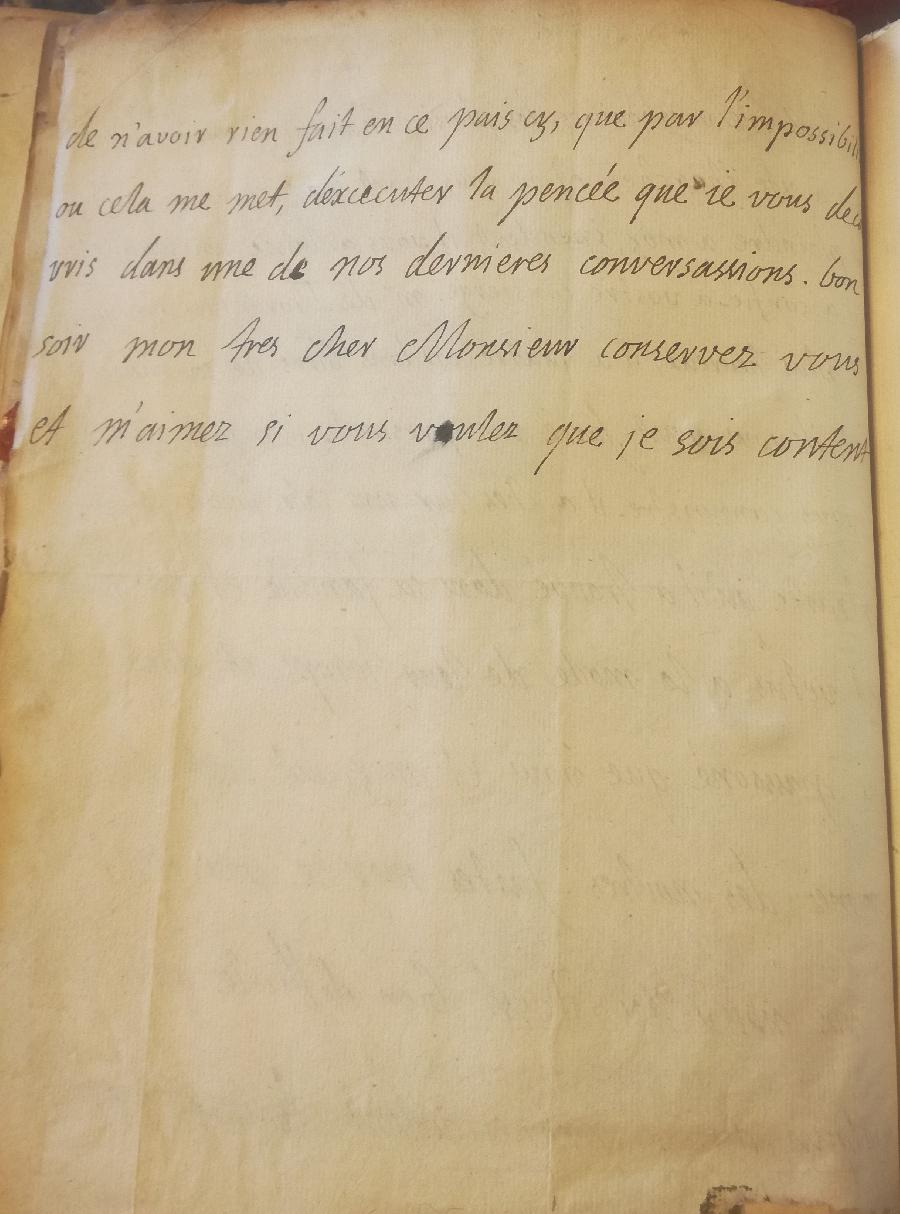 de n'avoir rien fait en ce païs cy, que par l'impossibili
ou cela me met, déxcecuter la pencée que ie vous dec
vris dans une de nos dernieres conversassions. bon
soir mon tres cher Monsieur conservez vous
et m'aimez si vous voulez que je sois content